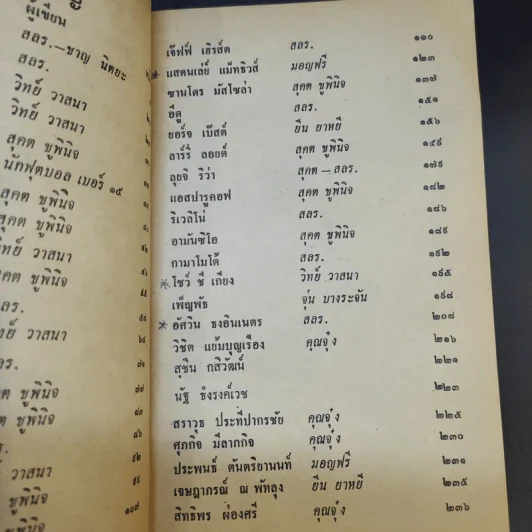 ผู้เขียน
สลร.—ชาญ นิตยะ
สลร.
วิทย์ วาสนา
วิทย์ วาสนา
สุคต ชูพินิจ
นักฟุตบอล เบอร์ ๑๕
สุคต ชูพินิจ
สุคต ชูพินิจ
วิทย์ วาสนา
สุคต ชูพินิจ
สลร.
วิทย์ วาสนา
สลร.
สุคต ชูพินิจ
สุคต ชูพินิจ ๗๗
สุคต ชูพินิจ
สลร. ๘๖
สุคต ชูพินิจ ๙๒
วิทย์ วาสนา
ชูพินิจ ๑๐๗
เจ๊ฟฟ์ เฮิร์สต์ สลร. ๑๑๐
* แสตนเล่ย์ แม็ทธิวส์ มอญฟรี ๑๒๓
ซานโดร มัสโซล่า สุคต ชูพินิจ ๑๓๗
อีดู สลร. ๑๕๑
ยอร์จ เบ๊สต์ ยืน ยาหยี ๑๕๖
ลาร์รี่ ลอยด์ สุคต ชูพินิจ ๑๔๙
ลุยจิ ริว่า สุคต —สลร. ๑๗๙
แอสปารูคอฟ สุคต ชูพินิจ ๑๘๒
ริเวลิโน่ สลร. ๑๘๖
อามันซิโอ สุคต ชูพินิจ ๑๘๙
กามาโมโต้ สลร. ๑๙๒
* โชว์ ชี เกียง วิทย์ วาสนา ๑๙๕
เพ็ญพัธ จุ่น บางระจัน ๑๙๘
* อัศวิน ธงอินเนตร สลร. ๒๐๘
วิชิต แย้มบุญเรือง คุณจุ๋ง ๒๑๖
สุชิน กสิวัฒน์ ๒๒๑
นัฐ ธํงรงค์เวช ๒๒๓
สราวุธ ประทีปากรชัย คุณจุ๋ง ๒๒๕
ศุภกิจ มีลาภกิจ คุณจุ๋ง ๒๓๐
ประพนธ์ ตันตริยานนท์ มอญฟรี ๒๓๑
เจษฎาภรณ์ ณ พัทลุง ยืน ยาหยี ๒๓๕
สิทธิพร ผ่องศรี คุณจุ๋ง ๒๓๖